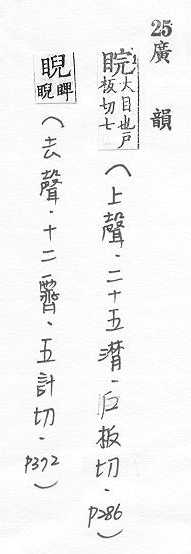 25廣韻
睆大目也戶板切七（上聲．二十五潸．戶板切．p286）
睨睥睨（去聲．十二霽．五計切．p372）